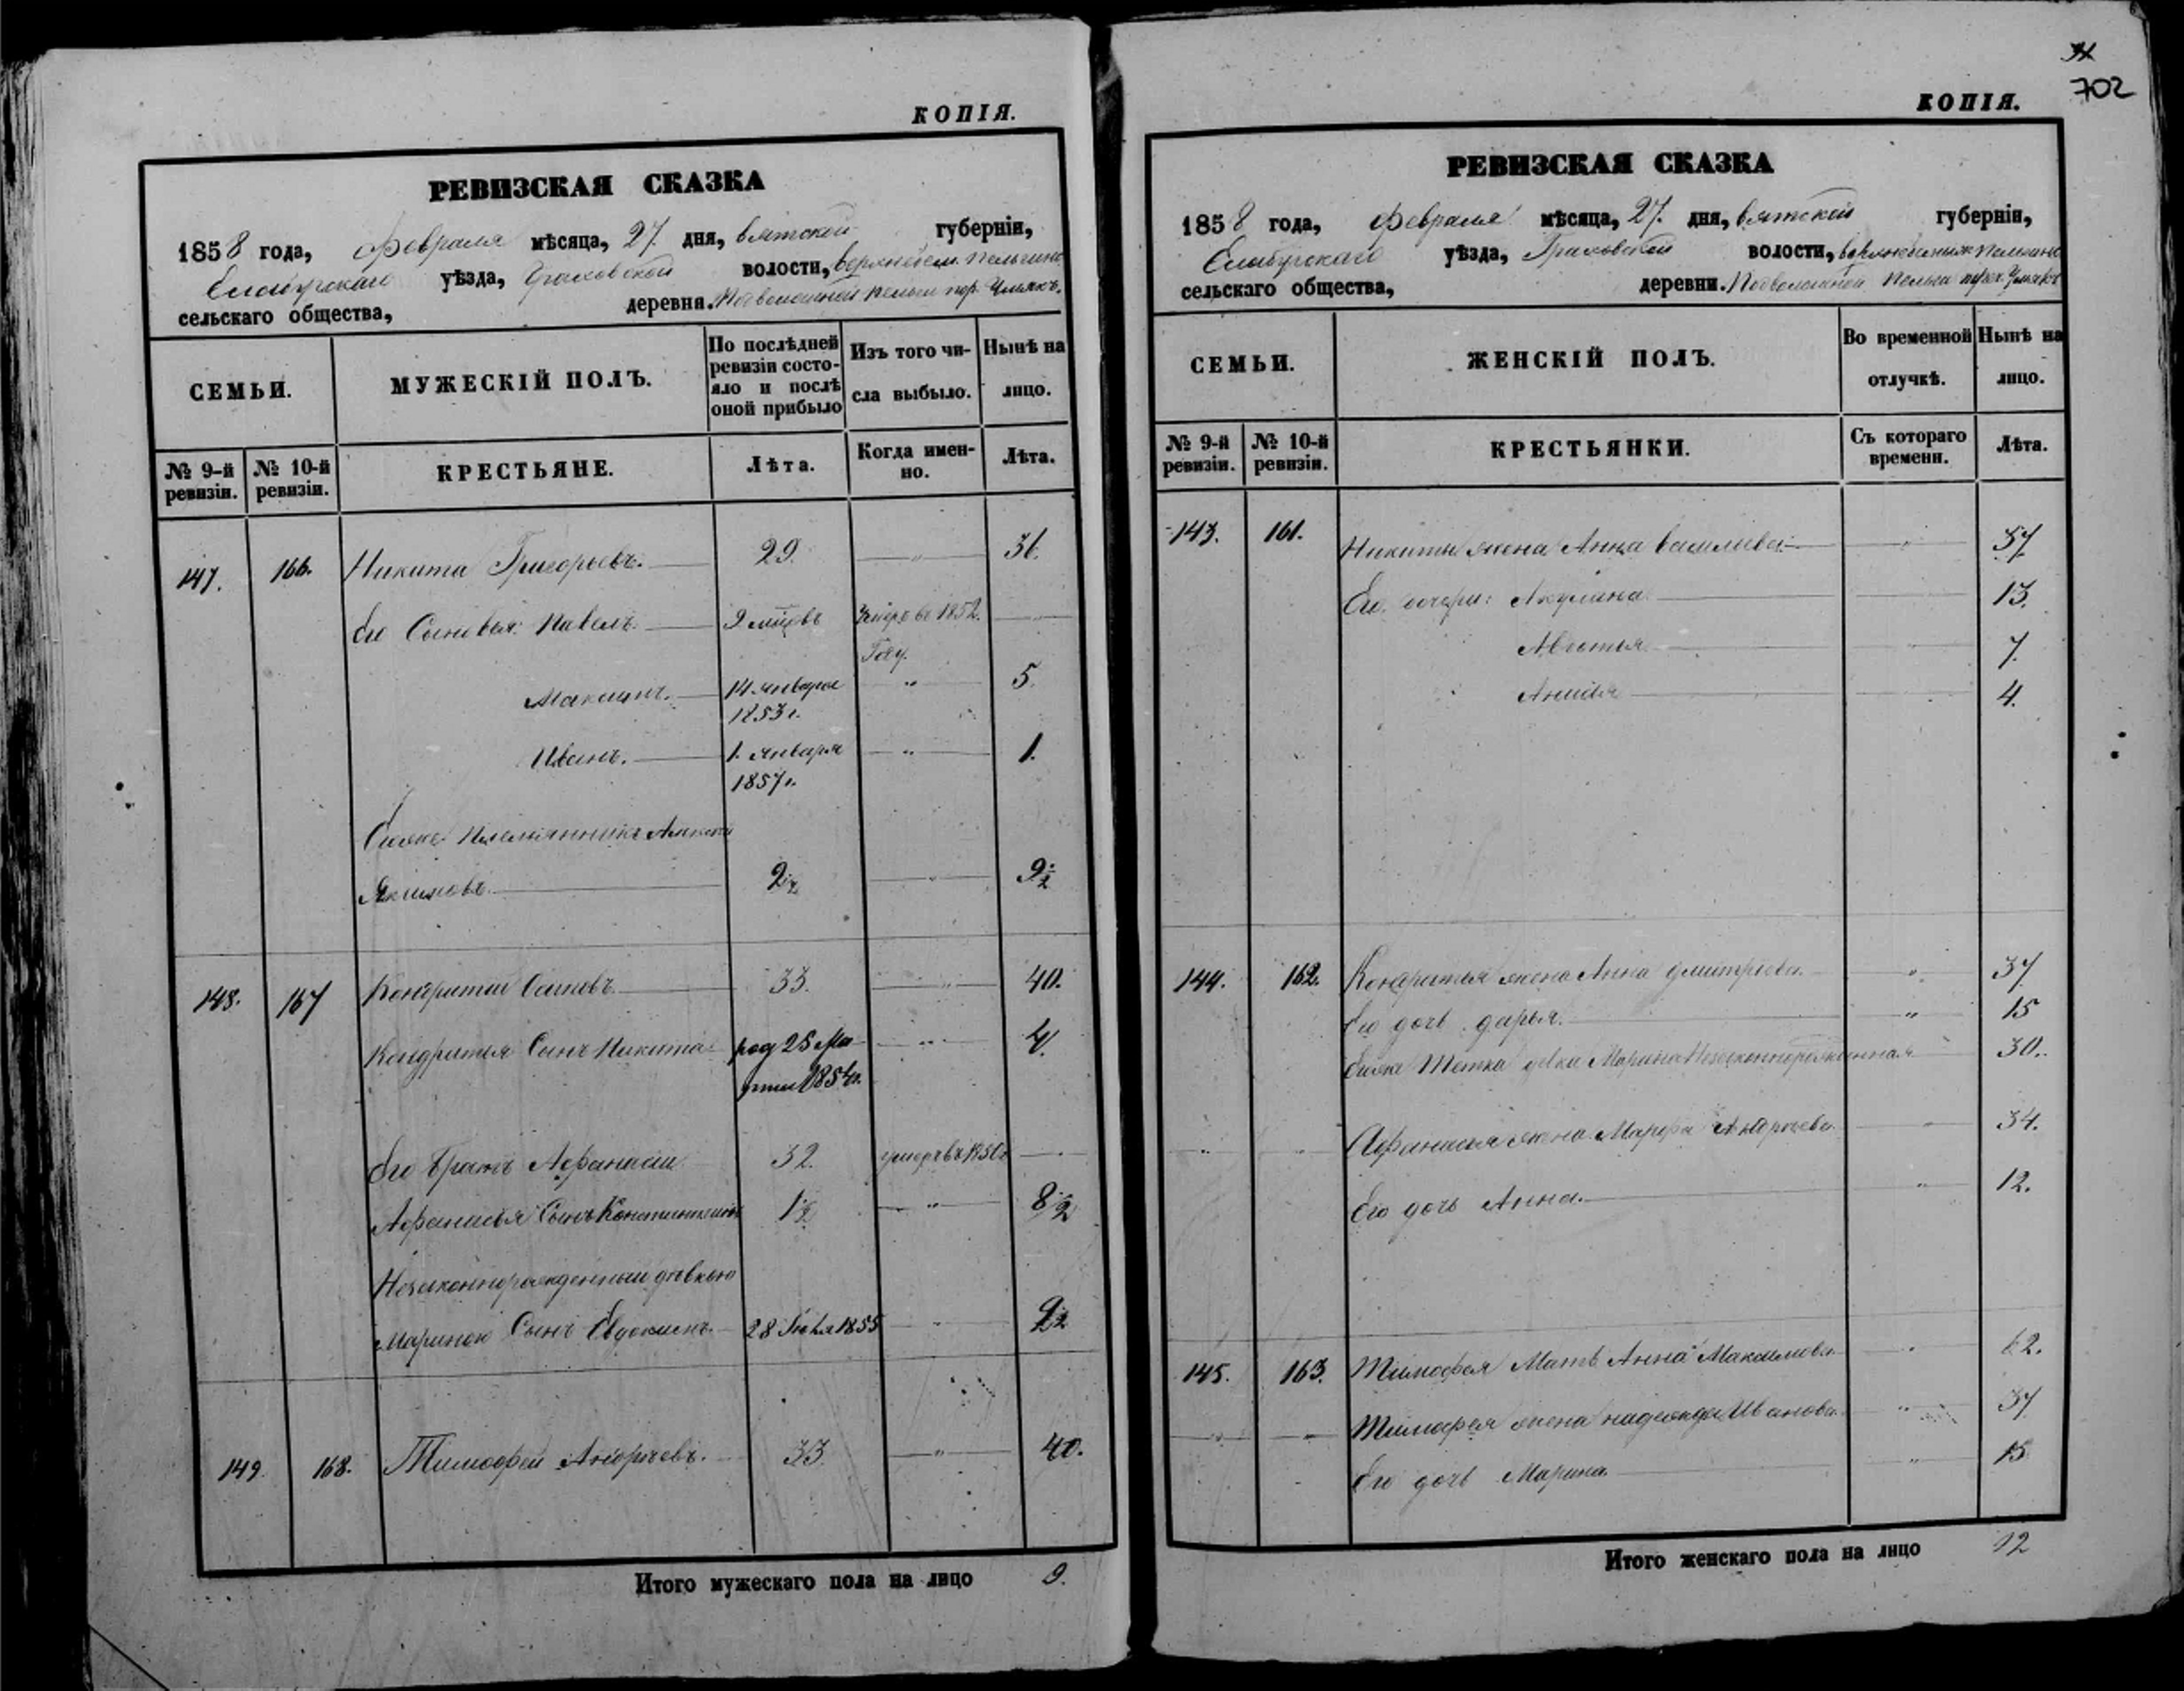 КОПІЯ.
РЕВИЗСКАЯ СКАЗКА
1858 года, Февраля мѣсяца, 27. дня, Вятской губерніи,
Елабугскаго уѣзда, Граховской волости,
сельскаго общества, деревня.
СЕМЬИ.
МУЖЕСКІЙ ПОЛЪ.
По послѣдней ревизіи состояло и послѣ оной прибыло
Изъ того числа выбыло.
Нынѣ на лицо.
№ 9-й ревизіи.
№ 10-й ревизіи.
КРЕСТЬЯНЕ.
Лѣта.
Когда именно.
Лѣта.
147. 166. Никита Григорьевъ. 29. " 36.
Его Сыновья: Павелъ. 9 мцовъ Умеръ въ 1852.
Году.
Максимъ. 14 января " 5.
1853 г.
Иванъ. 1. января " 1.
1857 г.
Егоже Племянникъ Алексей
Якимовъ. 2½ " 9½
148. 167 Кондратий 33. " 40.
Кондратья Сынъ Никита род 25 Ма- " 4.
рта 1854 г.
Его Братъ Афанасий 32. умеръ въ 1850 г
Афанасья Сынъ Константинъ 1½ " 8½
Незаконнорожденный девкою
Мариною Сынъ Евдокимъ. 28 1855 "
149. 168. Тимофей Андреевъ. 33. " 40.
Итого мужескаго пола на лицо 9.
702
КОПІЯ.
РЕВИЗСКАЯ СКАЗКА
1858 года, Февраля мѣсяца, 27. дня, Вятской губерніи,
Елабугскаго уѣзда, Граховской волости,
сельскаго общества, деревни.
СЕМЬИ.
ЖЕНСКІЙ ПОЛЪ.
Во временной отлучкѣ.
Нынѣ на лицо.
№ 9-й ревизіи.
№ 10-й ревизіи.
КРЕСТЬЯНКИ.
Съ котораго времени.
Лѣта.
143. 161. Никиты жена Анна Васильева " 37.
Его дочери: Акулина " 13.
Авдотья " 7.
4.
144. 162. Кондратья жена Анна Дмитриева " 37
Его дочь Дарья. " 15
Егоже Тетка девка Марина Незаконнорожденная 30.
" " Афанасья жена Марфа Андреева " 34.
Его дочь Анна. " 12.
145. 163. Тимофея Мать Анна Максимова " 62.
" " Тимофея жена надежда Иванова " 37
Его дочь Марина " 15
Итого женскаго пола на лицо 12